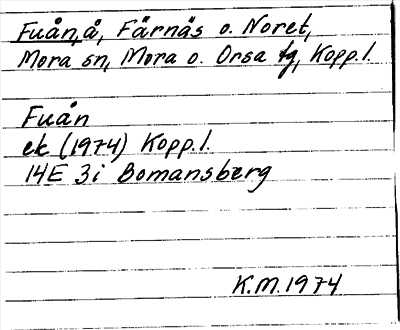 Fuån, å, Färnäs o. Noret,
Mora sn, Mora o. Orsa tg, Kopp. l.
Fuån
ek (1974) Kopp. l.
14E 3i Bomansberg
K.M. 1974